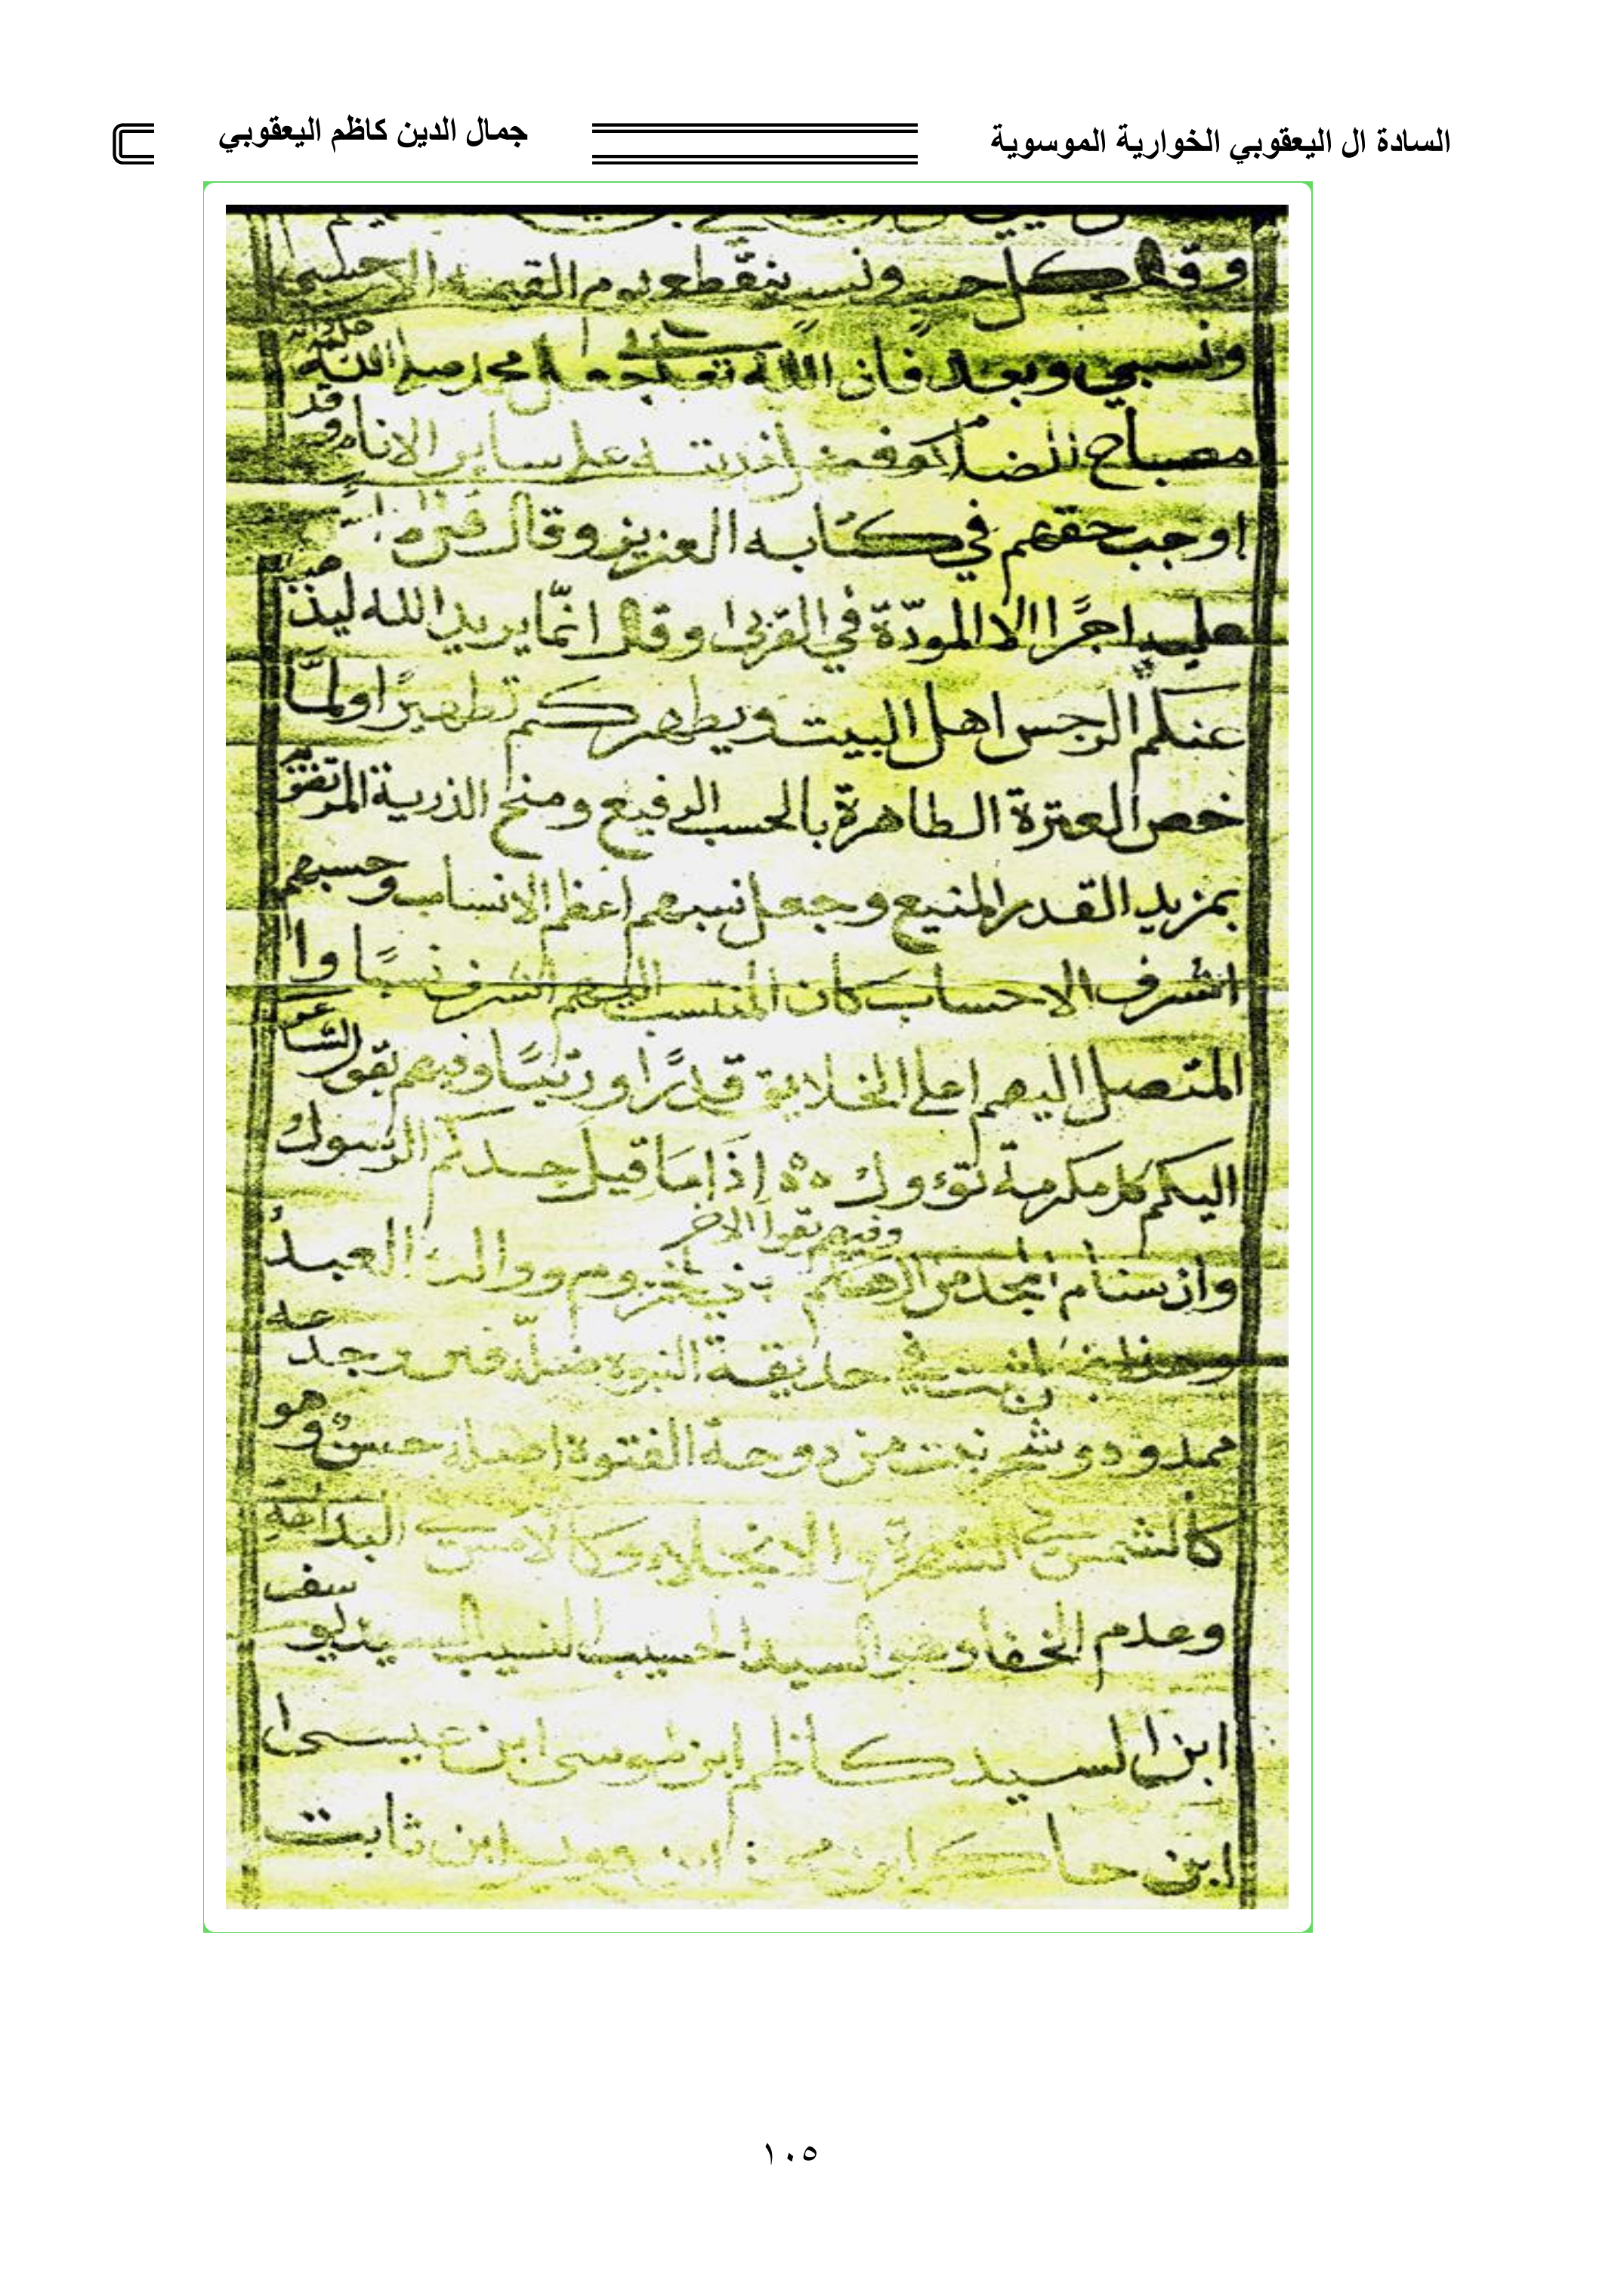 السادة ال اليعقوبي الخوارية الموسوية
جمال الدين كاظم اليعقوبي
وقال كل حسب ونسب ينقطع يوم القيمة الا حسبي
ونسبي وبعد فان الله تعالى جعل محمد صلى الله عليه واله
مصباح وقد على ساير الانام
اوجب حقهم في كتابه العزيز وقال
عليه اجرًا الا المودّة في القربى وقال انمّا يريد الله ليذهب
عنكم الرجس اهل البيت ويطهركم تطهيرًا ولمّا
خص العترة الطاهرة بالحسب الرفيع ومنح الذرية
بمزيد القدر المنيع وجعل نسبهم اعظم الانساب وحسبهم
اشرف الاحساب كان المنتسب اليهم اشرف نسبًا وا
المتصل اليهم اعلى الخلايق قدرًا ورتبًا وفيهم يقول الشاعر
اليكم كل مكرمة تؤول ٥٥ اِذَا مَا قيل جدكم الرسول
وفيهم يقول الاخر
وان سنام المجد من ال هاشم بني مخزوم ووالدك العبدُ
في حديقة النبوة
ممدود و نبت من دوحة الفتوة اصله حسن وهو
كالشمس في الشهرة و الانجلاء وكالامس في البداهة
وعدم الخفا وهو السيد الحسيب النسيب السيد يوسف
ابن السيد كاظم ابن موسى ابن عيسى ا
ابن حاكر ابن ابن ثابت
١٠٥